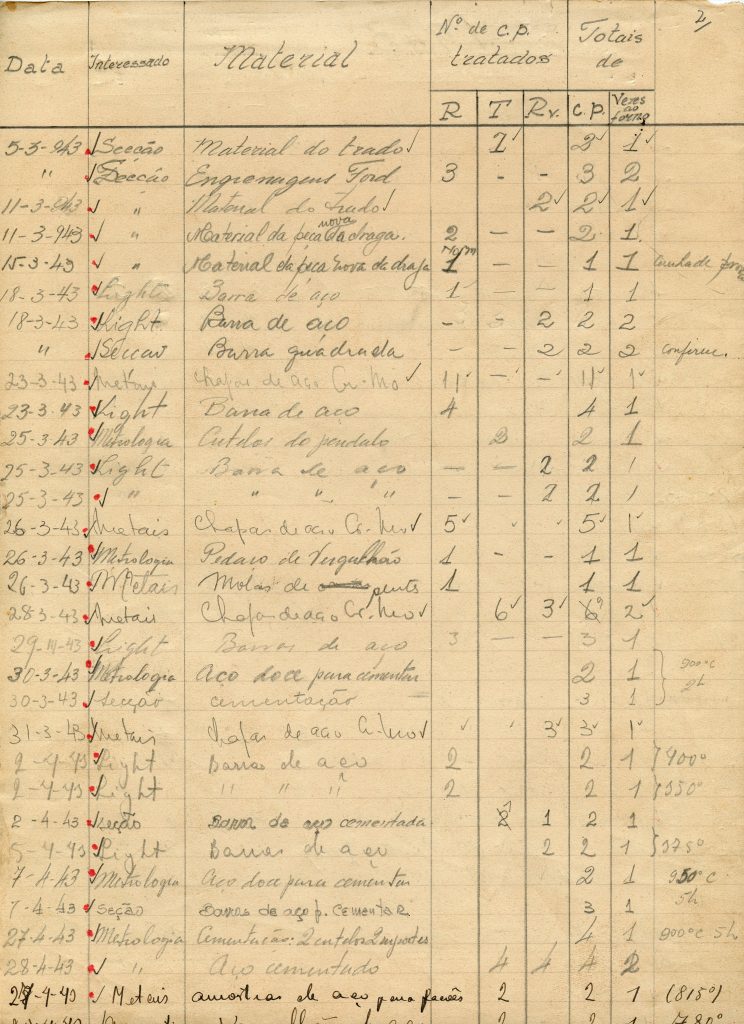 2/
Data Interessado Material Nº de c.p. tratados Totais de
R T Rv. c.p. Vezes ao forno
5-3-943 Secção Material do trado 2 1
" Secção Engrenagens Ford 3 - - 3 2
11-3-943 " Material do trado 2 2 1
11-3-943 " Material da peca nova da draga. 2 - - 2 1
15-3-43 " Material da peca nova da draga 1 - - 1 1
18-3-43 Light Barra de aço 1 - - 1 1
18-3-43 Light Barra de aço - - 2 2 2
" Barra quadrada - - 2 2 2
23-3-43 Metais Chapas de aço Cr-Mo 11 - - 11 1
23-3-43 Light Barra de aço 4 4 1
25-3-43 Metrologia Cutelos do pendulo 2 1
25-3-43 Light Barra de aço - - 2 2 1
25-3-43 " " " " - - 2 2 1
26-3-43 Metais Chapas de aço Cr-Mo 5 5 1
26-3-43 Metrologia Pedaco de Vergalhão 1 - - 1 1
26-3-43 Metais Molas de 1 1 1
28-3-43 Metais Chapas de aço Cr-Mo 6 3 2
29-III-43 Light Barras de aço 3 - - 3 1
30-3-43 Metrologia Aço doce para cementar 2 1 900°C
30-3-43 Secção cementação 3 1 2h
31-3-43 Metais Chapas de aço Cr-Mo 3 3 1
2-4-43 Light Barras de aço 2 2 1 400°
2-4-43 Light " " " 2 2 1 350°
2-4-43 Seção Barra de aço cementada 2 1 2 1
5-4-43 Light Barras de aço 2 2 1 375°
7-4-43 Metrologia Aço doce para cementar 2 1 950°C
7-4-43 Seção Barras de aço p. Cementar 3 1 5h
27-4-43 Metrologia Cementação: 2 cutelos 2 suportes 4 1 900°C 5h
28-4-43 " Aço cementado 4 4 4 2
27-4-43 Metais amostras de aço para facões 2 2 1 (815°)
2 2 1 780°